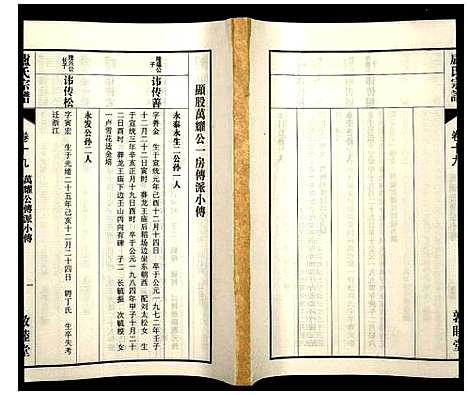 盧氏宗譜
卷十九
敦睦堂
顯股萬耀公一房傳派小傳
永泰永生二公孙一人
隆福公子
讳传善
字养金 生于宣统元年己酉十二月十四日 卒于公元一九七二年壬子
十二月二十二日寅时 葬龙王庙后稻场边坐东朝西 配刘太松女 生
于宣统三年辛亥正月十九日酉时 卒于公元一九八四年甲子十月二十
二日酉时 葬龙王庙下边壬山丙向有碑 子二 长毓振 次毓榜 女
一卢雪花适金培
永发公孙一人
隆兴公长子
讳传松
字寅宏 生于光绪二十五年己亥十二月二十四日 聘丁氏 生卒失考
迁浙江
盧氏宗譜
卷十九 萬耀公傳派小傳
一 敦睦堂